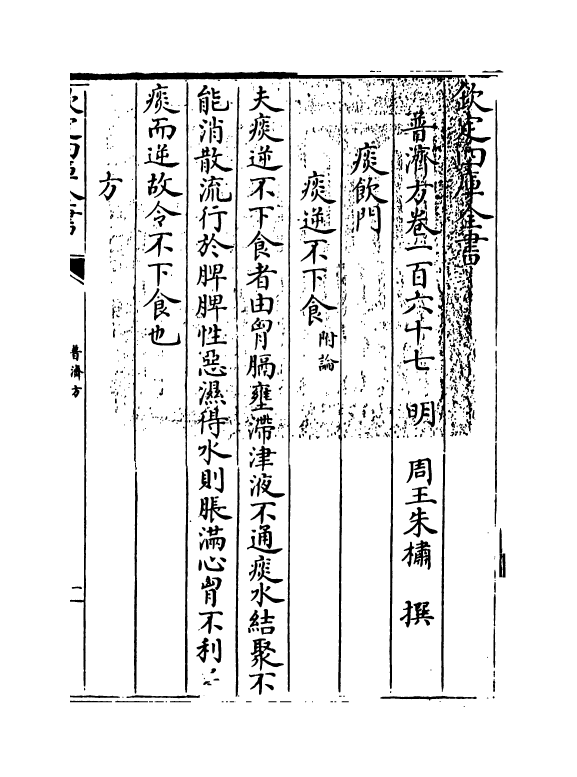 欽定四庫全書
普濟方卷一百六十七　明　周王朱橚　撰
痰飲門
痰逆不下食附論
夫痰逆不下食者由胷膈壅滯津液不通痰水結聚不
能消散流行於脾脾性惡濕得水則脹滿心胷不利
痰而逆故令不下食也
方
欽定四庫全書
普濟方
一